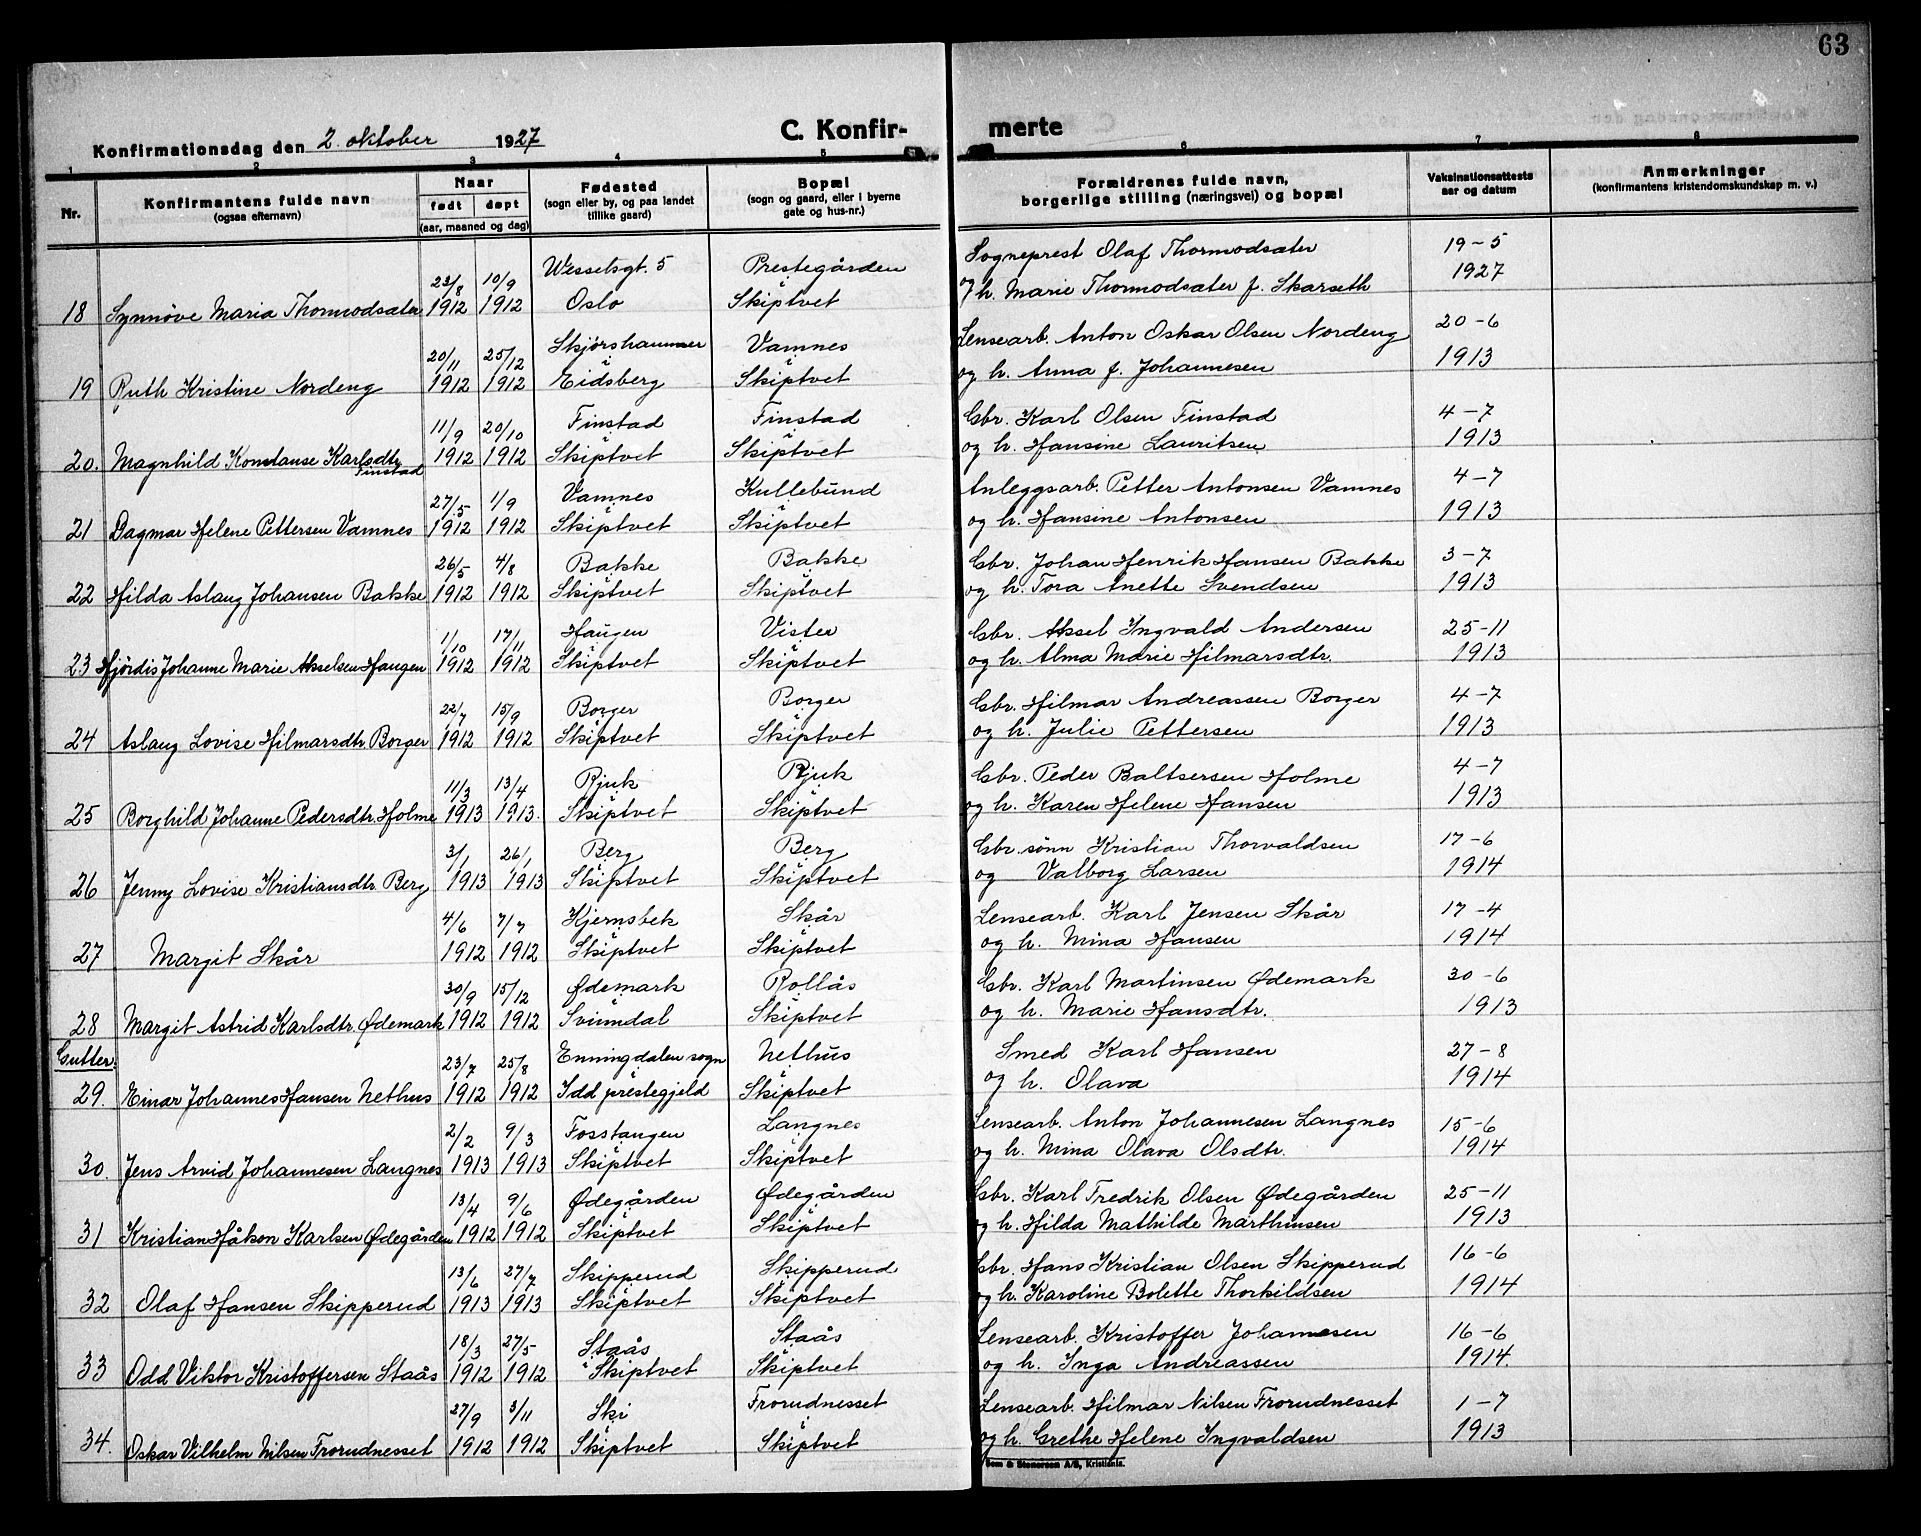 63
Konfirmationsdag den 2. oktober 1927
C. Konfir-
merte
1 2 3 4 5 6 7 8
Nr.
Konfirmantens fulde navn
(ogsaa efternavn)
Naar
født døpt
(aar, maaned og dag)
Fødested
(sogn eller by, og paa landet
tillike gaard)
Bopæl
(sogn og gaard, eller i byerne
gate og hus-nr.)
Forældrenes fulde navn,
borgerlige stilling (næringsvei) og bopæl
Vaksinationsattests
aar og datum
Anmerkninger
(konfirmantens kristendomskundskap m. v.)
23/8 10/9 Wesselsgt. 5 Prestegården Sogneprest Olaf Thormodsæter 19-5
18 Synnøve Maria Thormodsæter 1912 1912 Oslo Skiptvet og h. Marie Thormodsæter f. Skarseth 1927
20/11 25/12 Skjørshammer Vamnes Lensearb. Anton Oskar Olsen Nordeng 20-6
19 Ruth Kristine Nordeng 1912 1912 Eidsberg Skiptvet og h. Anna f. Johannesen 1913
11/9 20/10 Finstad Finstad Gbr. Karl Olsen Finstad 4-7
20. Magnhild Konstanse Karlsdtr 1912 1912 Skiptvet Skiptvet og h. Hansine Lauritsen 1913
Finstad
27/5 1/9 Vamnes Kullebund Anleggsarb. Petter Antonsen Vamnes 4-7
21 Dagmar Helene Pettersen Vamnes 1912 1912 Skiptvet Skiptvet og h. Hansine Antonsen 1913
26/5 4/8 Bakke Bakke Gbr. Johan Henrik Hansen Bakke 3-7
22 Hilda Aslaug Johansen Bakke 1912 1912 Skiptvet Skiptvet og h. Tora Anette Svendsen 1913
1/10 17/11 Haugen Vister Gbr. Aksel Ingvald Andersen 25-11
23 Hjørdis Johanne Marie Akselsen Haugen 1912 1912 Skiptvet Skiptvet og h. Alma Marie Hilmarsdtr. 1913
22/7 15/9 Borger Borger Gbr. Hilmar Andreassen Borger 4-7
24 Aslaug Lovise Hilmarsdtr. Borger 1912 1912 Skiptvet Skiptvet og h. Julie Pettersen 1913
11/3 13/4 Rjuk Rjuk Gbr. Peder Baltsersen Holme 4-7
25 Borghild Johanne Pedersdtr. Holme 1913 1913. Skiptvet Skiptvet og h. Karen Helene Hansen 1913
3/1 26/1 Berg Berg Gbr. sønn Kristian Thorvaldsen 17-6
26 Jenny Lovise Kristiansdtr. Berg 1913 1913 Skiptvet Skiptvet og Valborg Larsen 1914
4/6 7/7 Kjernsbek Skår Lensearb. Karl Jensen Skår 17-4
27 Margit Skår 1912 1912 Skiptvet Skiptvet og h. Mina Hansen 1914
30/9 15/12 Ødemark Rollås Gbr. Karl Martinsen Ødemark 30-6
28 Margit Astrid Karlsdtr. Ødemark 1912 1912 Svinndal Skiptvet og h. Marie Hansdtr. 1913
Gutter: 23/7 25/8 Enningdalen sogn Nethus Smed Karl Hansen 27-8
29. Einar Johannes Hansen Nethus 1912 1912 Idd prestegjeld Skiptvet og h. Olava 1914
2/2 9/3 Fosstangen Langnes Lensearb. Anton Johannesen Langnes 15-6
30. Jens Arvid Johannesen Langnes 1913 1913 Skiptvet Skiptvet og h. Mina Olava Olsdtr. 1914
13/4 9/6 Ødegården Ødegården Gbr. Karl Fredrik Olsen Ødegården 25-11
31 Kristian Håkon Karlsen Ødegården 1912 1912 Skiptvet Skiptvet og h. Hilda Mathilde Marthinsen 1913
13/6 27/7 Skipperud Skipperud Gbr. Hans Kristian Olsen Skipperud 16-6
32 Olaf Hansen Skipperud 1913 1913 Skiptvet Skiptvet og h. Karoline Bolette Thorkildsen 1914
18/3 27/5 Staås Staås Lensearb. Kristoffer Johannesen 16-6
33 Odd Viktor Kristoffersen Staås 1912 1912 Skiptvet Skiptvet og h. Inga Andreassen 1914.
27/9 3/11 Ski Frorudnesset Lensearb. Hilmar Nilsen Frorudnesset 1-7
34. Oskar Vilhelm Nilsen Frorudnesset 1912 1912 Skiptvet Skiptvet og h. Grethe Helene Ingvaldsen 1913
Sem & Stenersen A/S, Kristiania.